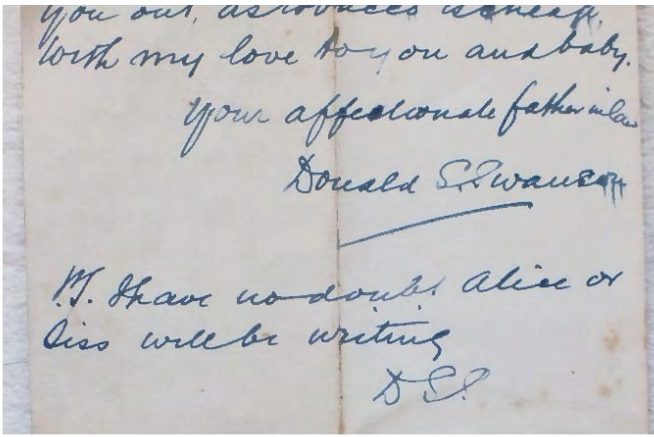 you out, as
With my love to you and baby.
your affectionate father in law
Donald S. Swanson
P.S. I have no doubt Alice or
Siss will be writing
D S S.